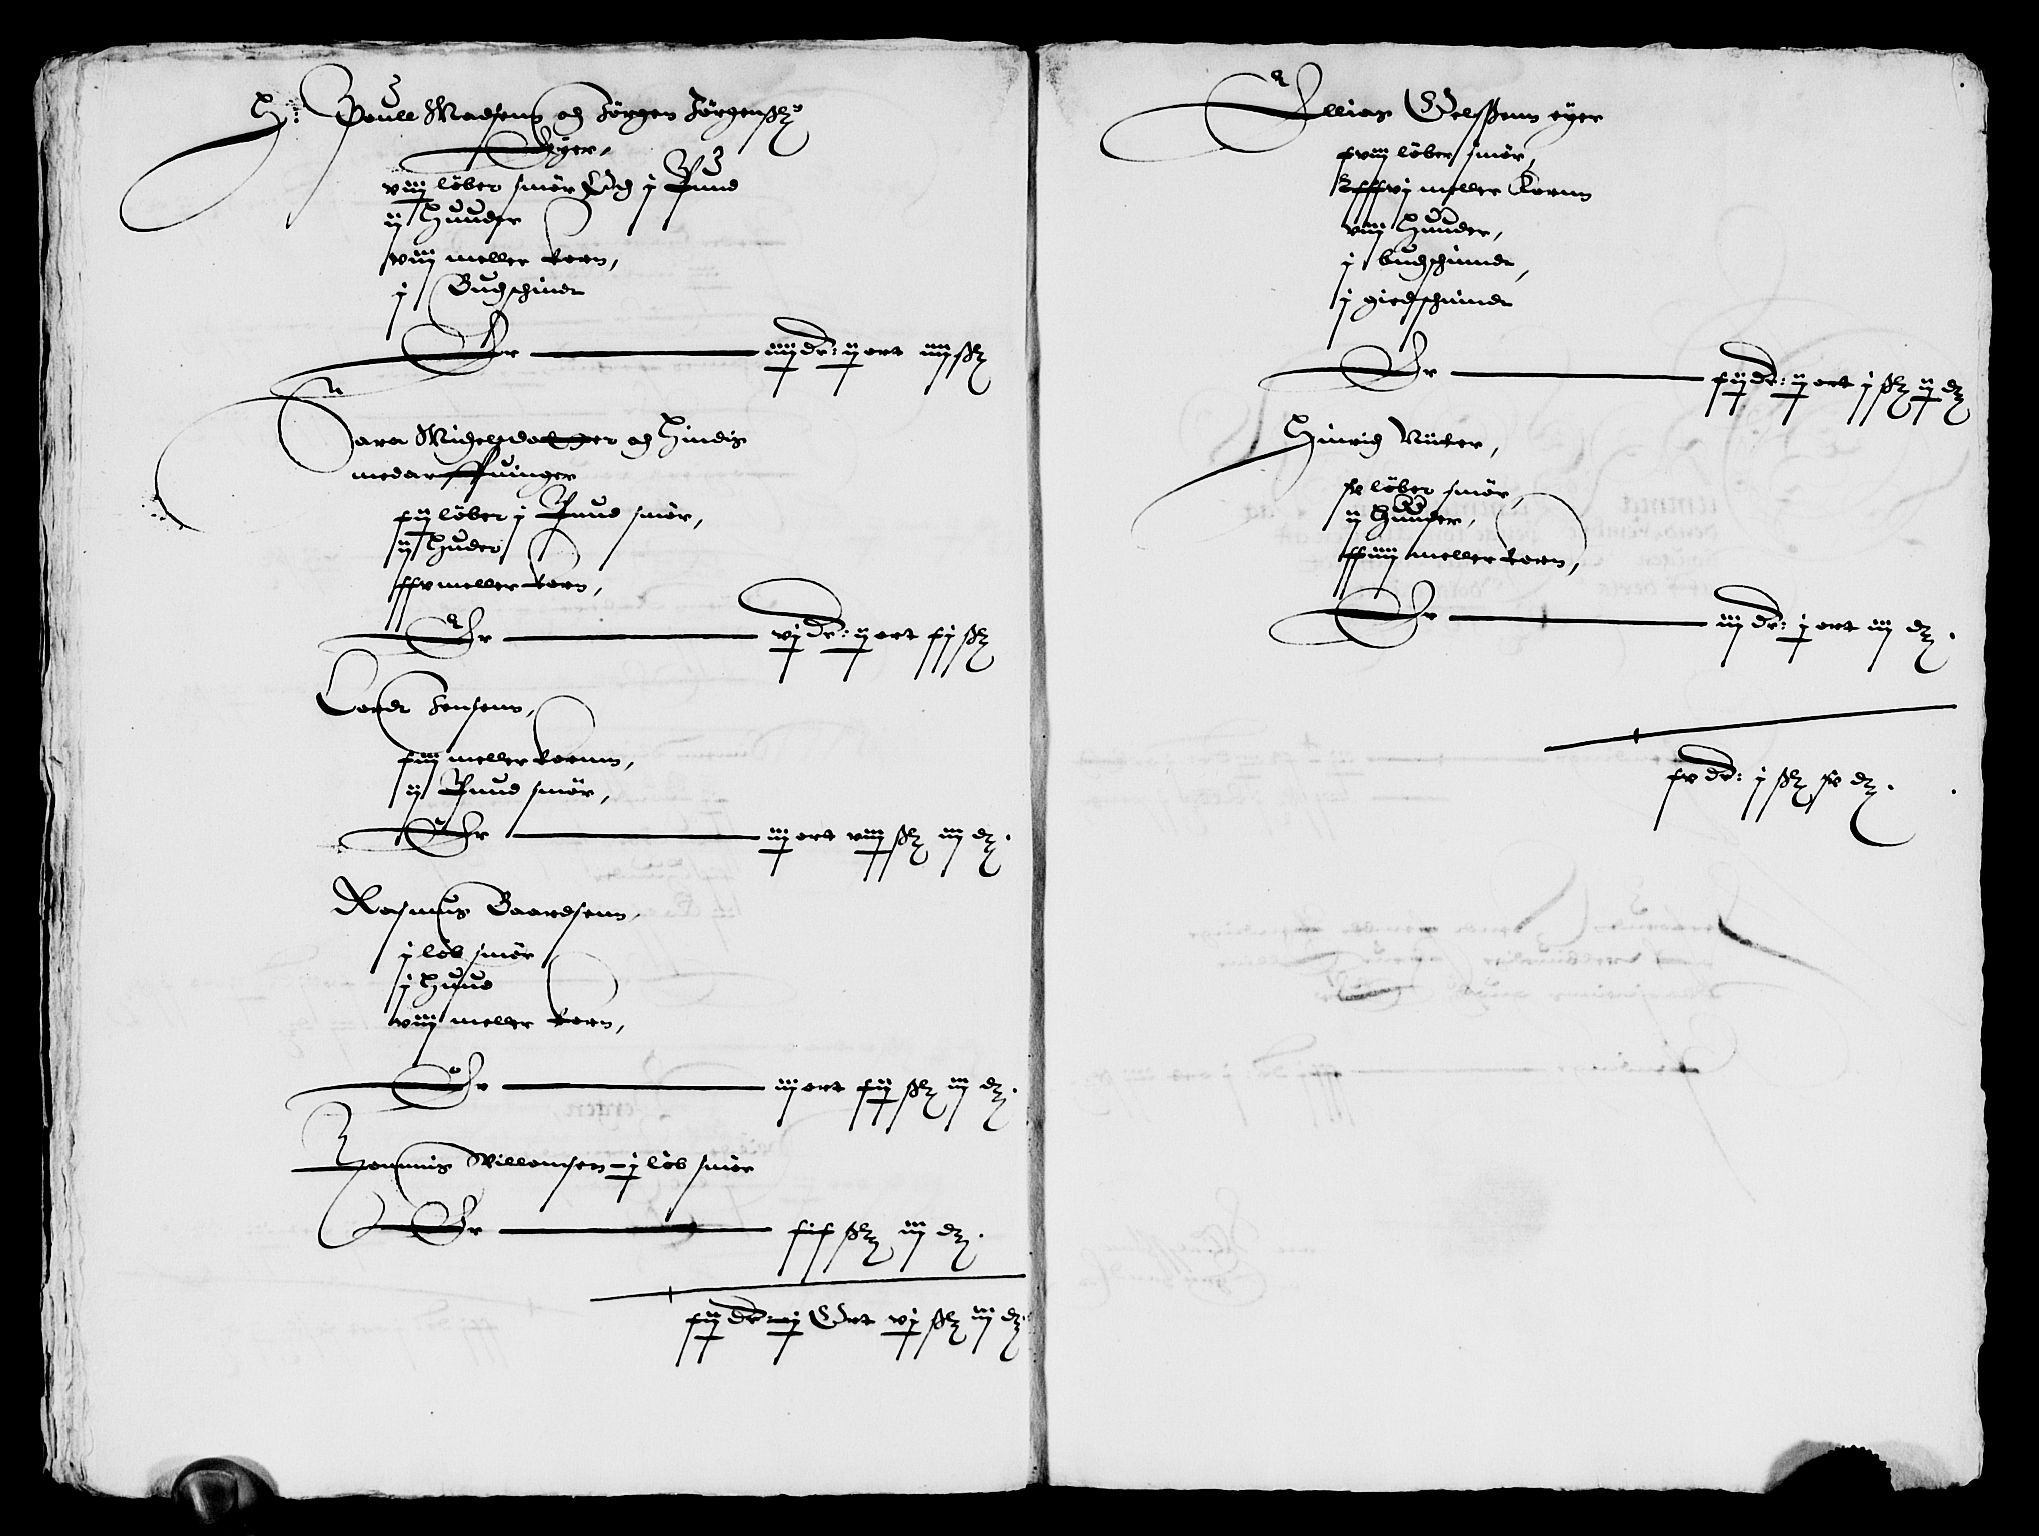 H: Poull Madsens och Jørgen Jørgenß:
Eÿer,
viij løber smør Och j Pund
ij Huuder
xviij meller korn,
j Buchschindt
Er iiij dr: ij ort iiij ß
Sara Michelsdatter och Hindis
medarffuinger
xij løber j Pund smør,
ij Huder
xxv meller korn,
Er vj dr: ij ort xj ß
Cordt Jensens,
xiij meller kornn,
ij Pund smør,
Er iij ort viij ß iiij d.
Rasmus Baardsenn,
j løb smør
j Huud
viiij meller korn,
Er iij ort xij ß iij d.
Hemmis Willomsen j løb smør
Er xix ß iij d.
xij dr: j Ort vj ß iij d.
Ellias Eelsßenn eyer
xviij løber smør,
Lxxxvj meller Kornn
viij Huuder,
j buchschindt,
j giedschindt
Er xij dr: ij ort j ß ij d
Hinrich Rütter,
ix løber smør,
ij Huuder,
xxiiij meller korn,
Er iij dr: j ort iij d.
xv dr: j ß ix d.